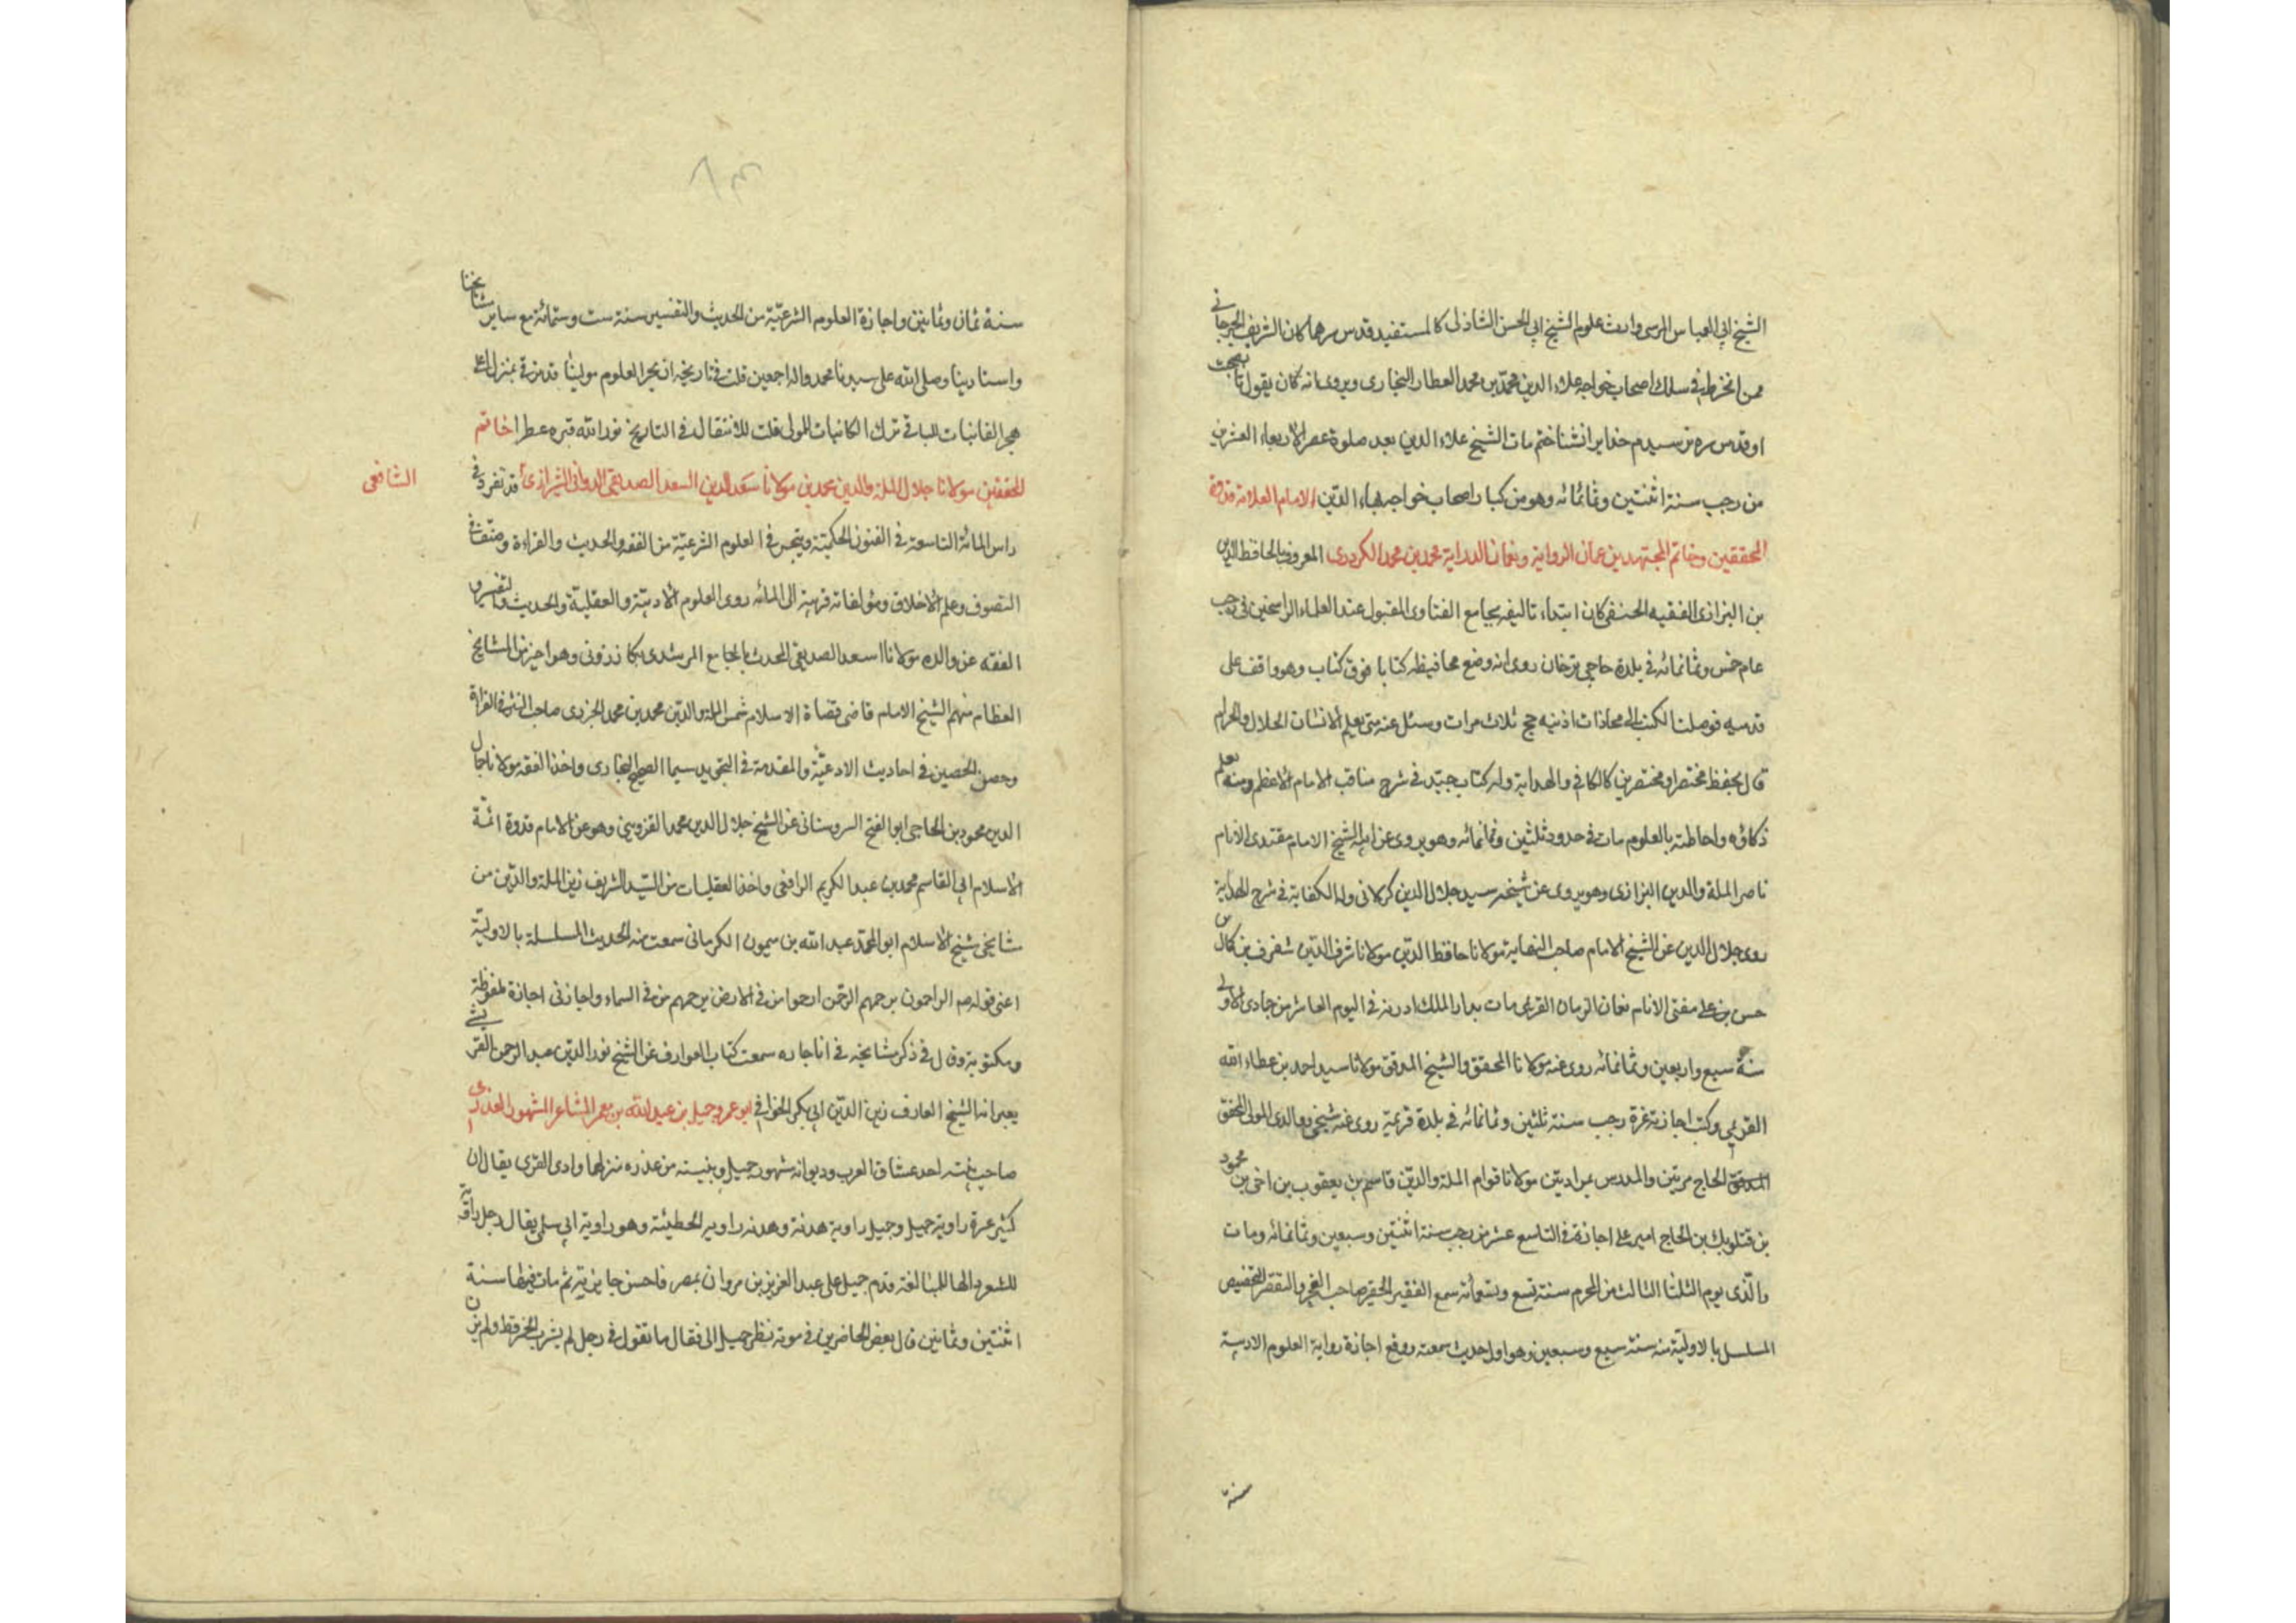 الشيخ ابي العباس المرسى وارث علوم الشيخ ابي الحسن الشاذلى كالمستفيد قدس سرهما كان الشريف الجرجانى
ممن انخرط فى سلك اصحاب خواجه علاء الدين محمد بن محمد العطار البخارى ويروى انه كان يقول تا بصحبت
او قدس سره نرسيدم خدايرا نشناختم مات الشيخ علاء الدين بعد صلوة عصر الاربعاء العشرين
من رجب سنة اثنتين وثمانمائه وهو من كبار اصحاب خواجه بهاء الدين الامام العلامة قدوة
المحققين وخاتم المجتهدين عمان الرواية ونعمان الدراية محمد بن محمد الكردرى المعروف بالحافظ الدين
بن البزازى الفقيه الحنفى كان ابتداء تاليفه بجامع الفتاوى المقبول عند العلماء الراسخين فى رجب
عام خمس وثمانمائه فى بلدة حاجى ترخان روى انه وضع محافيظه كتابا فوق كتاب وهو واقف على
قدميه فوصلنا لكتب الى محاذات اذنيه حج ثلاث مرات وسئل عنه متى يعلم الانسان الحلال والحرام
قال بحفظ مختصر او مختصرين كالكافى والهداية وله كتاب جيد فى شرح مناقب الامام الاعظم ومنه يعلم
ذكاؤه واحاطته بالعلوم مات فى حدود ثلثين وثمانمائه وهو يروى عن ابيه الشيخ الامام مقتدى الانام
ناصر الملة والدين البزازى وهو يروى عن شيخه سيد جلال الدين كركلانى وله الكفاية فى شرح الهداية
روى جلال الدين عن الشيخ الامام صاحب النهاية مولانا حافظ الدين مولانا شرف الدين شفرف بن كمال بن
حسن بن على مفتى الانام نعمان الزمان القريمى مات بدار الملك ادرنه فى اليوم العاشر من جمادى الاولى
سنة سبع واربعين وثمانمائه روى عنه مولانا المحقق والشيخ المدقق مولانا سيد احمد بن عطاء الله
القريمى وكتب اجازته غرة رجب سنة ثلثين وثمانمائه فى بلدة قريمية روى عنه شيخى ووالدى المولى المحقق
المدقق الحاج مرتين والمدرس بمراديتين مولانا قوام الملة والدين قاسم بن يعقوب بن اخى بن محمود
بن قتلوبك بن الحاج امير على اجازة فى التاسع عشر من رجب سنة اثنتين وسبعين وثمانمائه ومات
والدى يوم الثلثا الثالث من المحرم سنة تسع وتسعمائه سمع الفقير الحقير صاحب العجز والتقصير
المسلسل بالاولية منه سنة سبع وسبعين وهو اول حديث سمعته ووقع اجازة رواية العلوم الادبية
سنة
سنة ثمان وثمانين واجازة العلوم الشرعية من الحديث والتفسير سنة ست وستمائه مع ساير مشايخنا
واستادينا وصلى الله على سيدنا محمد واله اجمعين قلت فى تاريخه ان بحر العلوم مولينا قد ترقى بمنزل اعلى
هجر الفانيات للباقى ترك الكائنات للمولى قلت للانتقال فى التاريخ نور الله قبره عطرا خاتم
المحققين مولانا جلال الملة والدين محمد بن مولانا سعد الدين اسعد الصديقى الدوانى الشيرازى قد تفرد فى
الشافعى
راس المائة التاسعة فى الفنون الحكمية وتبحر فى العلوم الشرعية من الفقه والحديث والقراءة وصنف فى
التصوف وعلم الاخلاق ومؤلفاته قريبة الى المائه روى العلوم الادبية والعقلية والحديث والتفسير و
الفقه عن والده مولانا اسعد الصديقى المحدث بالجامع المرشدى بكازرونى وهو اخيذ من المشايخ
العظام منهم الشيخ الامام قاضى قضاة الاسلام شمس الملة والدين محمد بن محمد الجزرى صاحب النشر فى القراة
وحصن الحصين فى احاديث الادعية والمقدمة فى التجويد سيما الصحيح البخارى واخذ الفقه مولانا جمال
الدين محمود بن الحاجى ابو الفتح السروستانى عن الشيخ جلال الدين محمد القزوينى وهو عن الامام قدوة ائمة
الاسلام ابى القاسم محمد بن عبد الكريم الرافعى واخذ العقليات من السيد الشريف زين الملة والدين من
مشايخى شيخ الاسلام ابو المجد عبد الله بن ميمون الكرمانى سمعت منه الحديث المسلسلة بالاولية
اعنى قوله صم الراحمون يرحمهم الرحمن ارحموا من فى الارض يرحمهم من فى السماء واجازنى اجازة ملفوظة
ومكتوبة وقال فى ذكر مشايخه فى اناجازه سمعت كتاب العوارف عن الشيخ نور الدين عبد الرحمن القرشى
بعبرانه الشيخ العارف زين الدين ابى بكر الخوافى ابو عمرو جميل بن عبد الله بن معمر الشاعر المشهور العذرى
صاحب بثينه احد عشاق العرب وديوانه مشهور جميل وبثينه من عذره منزلها وادى القرى يقال ان
كثير عزة راوية جميل وجميل راوية هدنة وهدنه راوية الحطيئة وهو راوية ابى سلمى يقال رجل راوية
للشعر والها للمبالغة قدم جميل على عبد العزيز بن مروان بمصر فاحسن جايزته ثم مات فيها سنة
اثنتين وثمانين قال بعض الحاضرين فى موته نظر جميل الى فقال ما تقول فى رجل لم يشرب الخمر قط ولم يزن